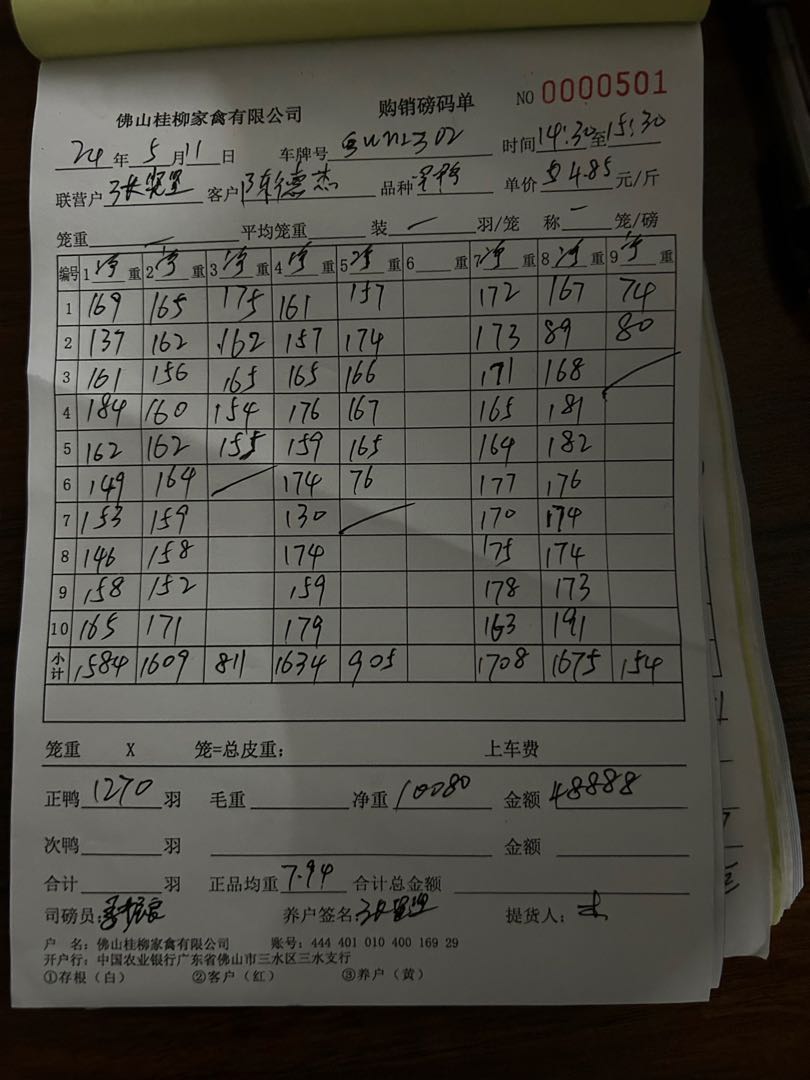 佛山桂柳家禽有限公司 购销磅码单 NO 0000501
24年5月11日 车牌号 时间14:30至15:30
联营户 张 客户 陈德杰 品种 单价 4.85 元/斤
笼重 一 平均笼重 装 一 羽/笼 称 一 笼/磅
编号 1净重 2净重 3净重 4净重 5净重 6 重 7净重 8净重 9净重
1 169 165 175 161 157 172 167 74
2 137 162 162 157 174 173 89 80
3 161 156 165 165 166 171 168
4 184 160 154 176 167 165 181
5 162 162 155 159 165 164 182
6 149 164 174 76 177 176
7 153 159 130 170 174
8 146 158 174 175 174
9 158 152 159 178 173
10 165 171 179 163 191
小计 1584 1609 811 1634 905 1708 1675 154
笼重 X 笼=总皮重： 上车费
正鸭 1270 羽 毛重 净重 10080 金额 48888
次鸭 羽 金额
合计 羽 正品均重 7.94 合计总金额
司磅员： 养户签名： 张 提货人：
户 名：佛山桂柳家禽有限公司 账号：444 401 010 400 169 29
开户行：中国农业银行广东省佛山市三水区三水支行
①存根（白） ②客户（红） ③养户（黄）